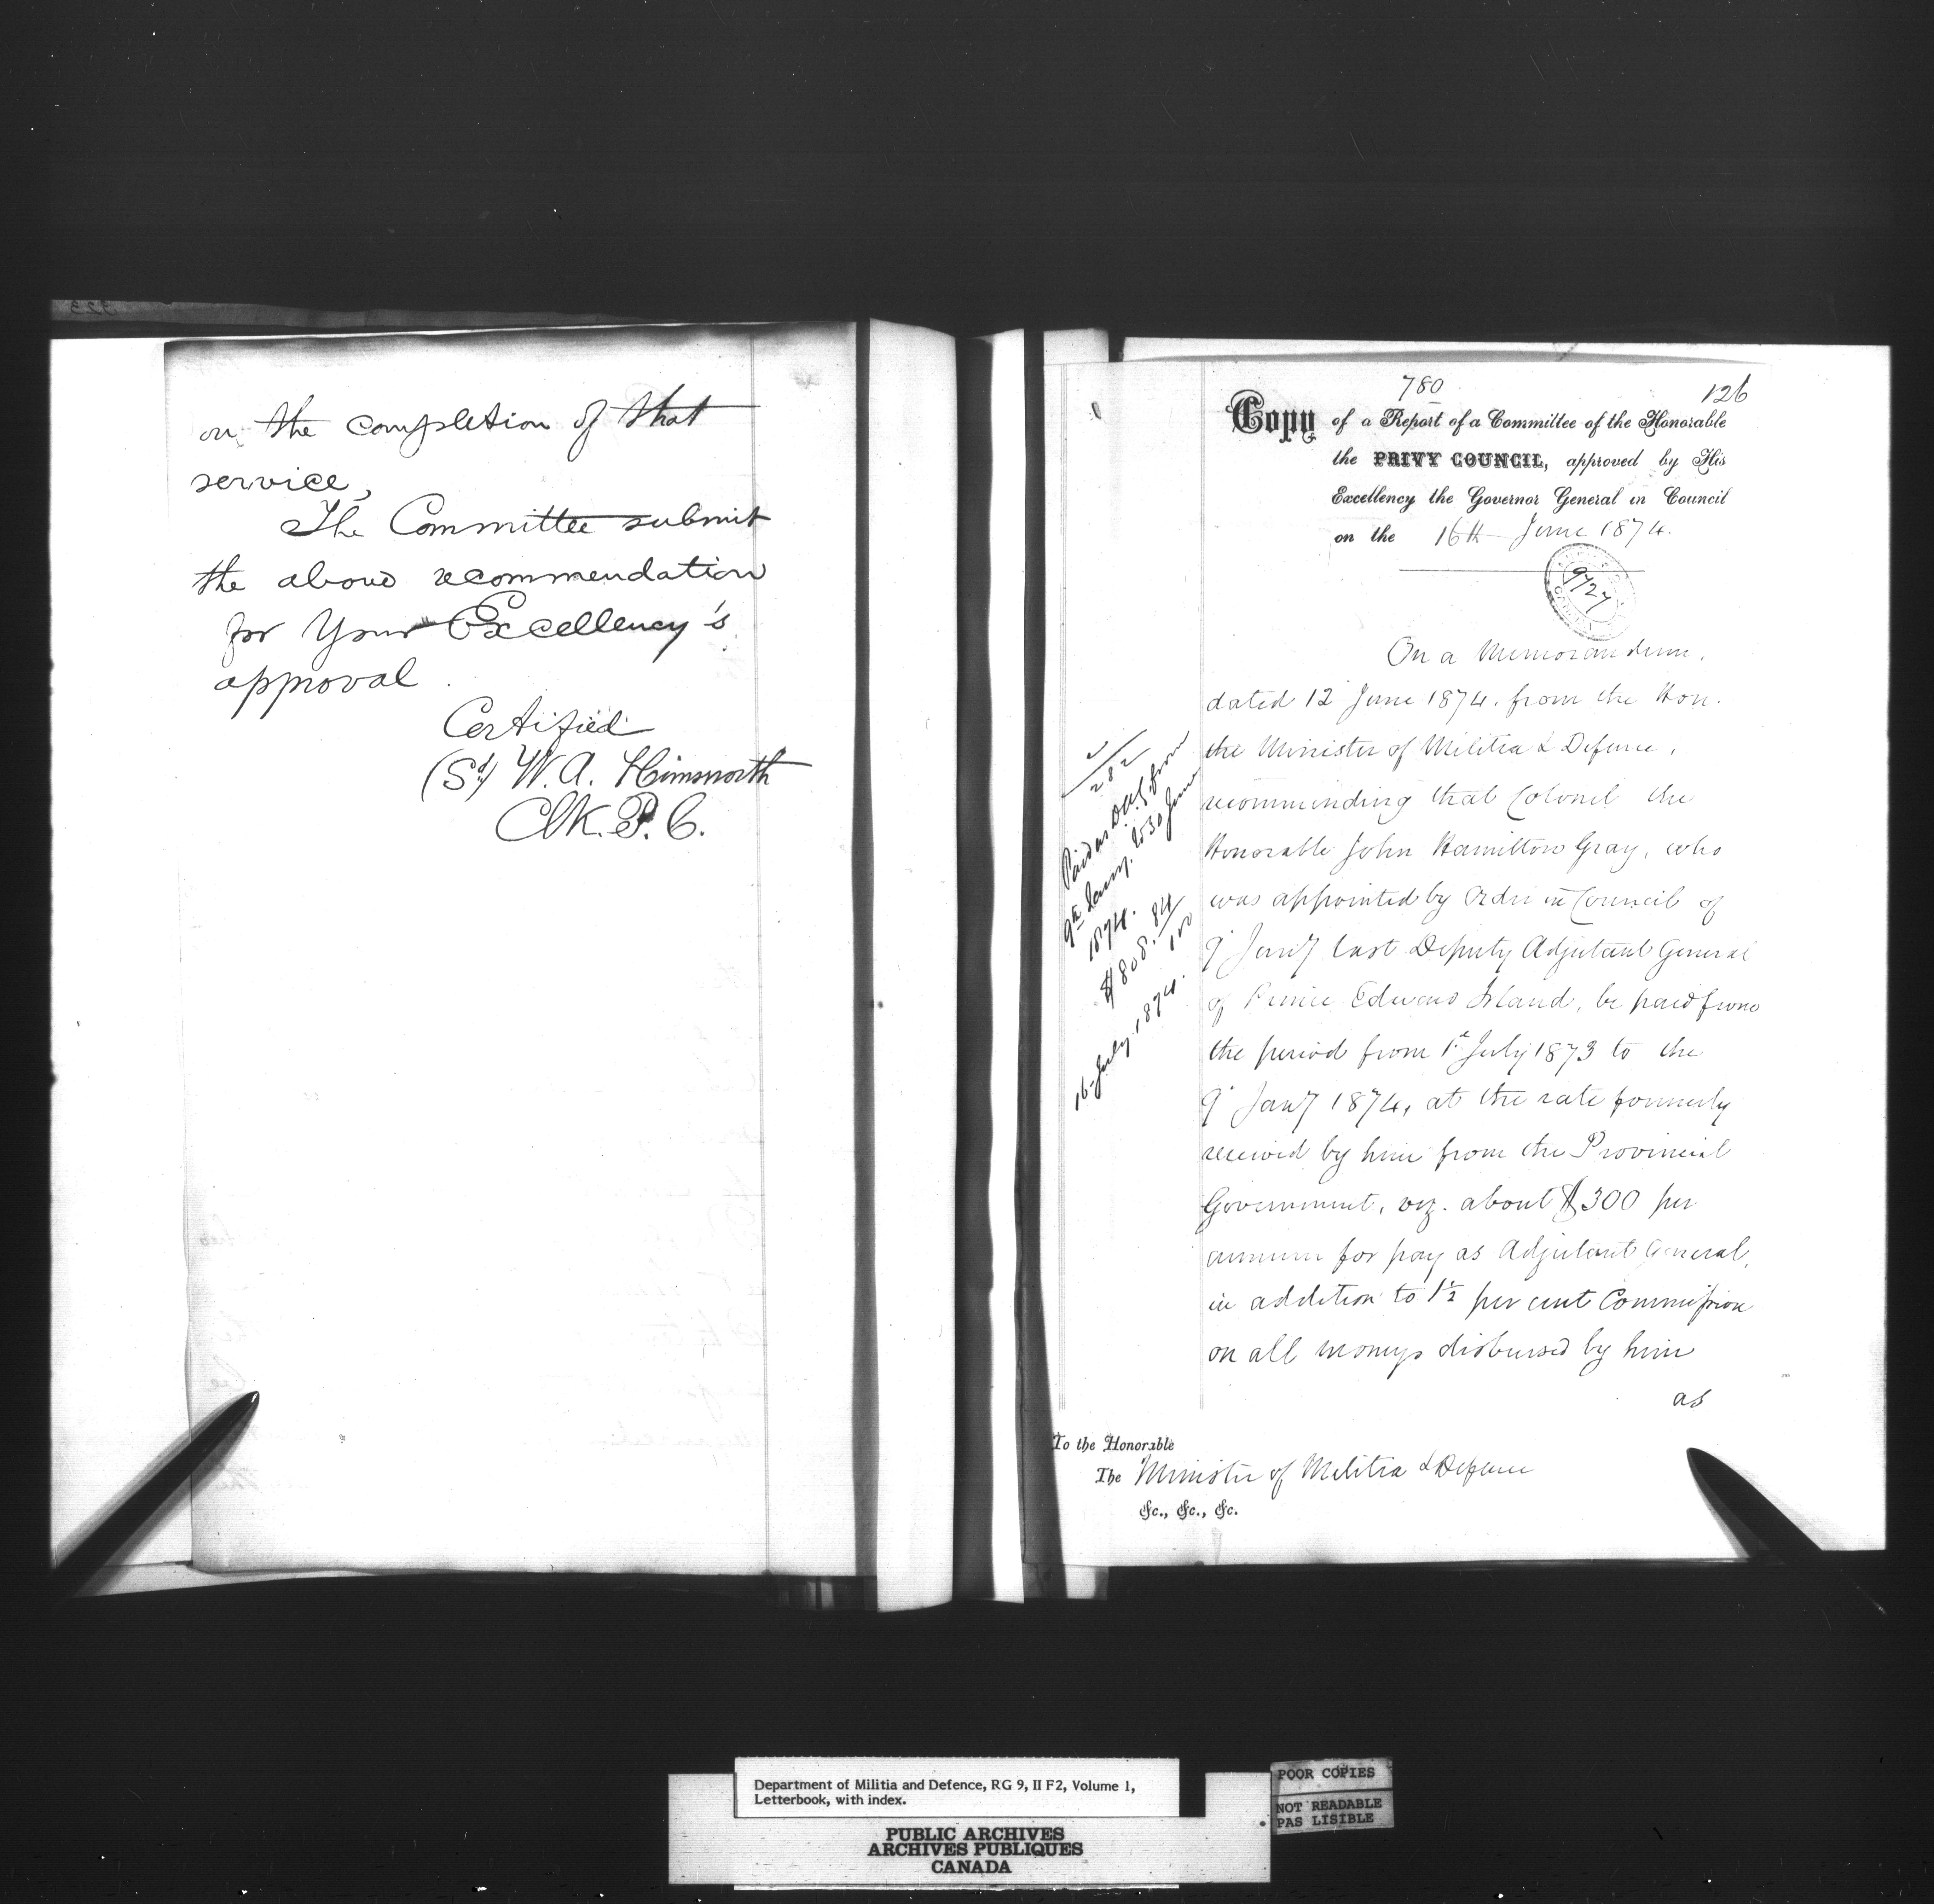 on the completion of that
service,
The Committee submit
the above recommendation
for Your Excellency's
approval.
Certified
(Sd) W. A. Himsworth
Clk. P. C.
780
126
Copy of a Report of a Committee of the Honorable
the PRIVY COUNCIL, approved by His
Excellency the Governor General in Council
on the 16th June 1874.
9727
On a Memorandum,
dated 12 June 1874. from the Hon.
the Minister of Militia & Defence,
recommending that Colonel the
Honorable John Hamilton Gray, who
was appointed by Order in Council of
9 Jany last Deputy Adjutant General
of Prince Edward Island, be paid from
the period from 1st July 1873 to the
9 Jany 1874, at the rate formerly
received by him from the Provincial
Government, viz. about $300 per
annum for pay as Adjutant General,
in addition to 1½ per cent Commission
on all moneys disbursed by him
as
2/282
Paid as D.A.G. from
9th Jany. to 30 June
1874.
$808. 84/100
16 July 1874.
To the Honorable
The Minister of Militia & Defence
&c., &c., &c.
Department of Militia and Defence, RG 9, II F2, Volume 1,
Letterbook, with index.
PUBLIC ARCHIVES
ARCHIVES PUBLIQUES
CANADA
POOR COPIES
NOT READABLE
PAS LISIBLE